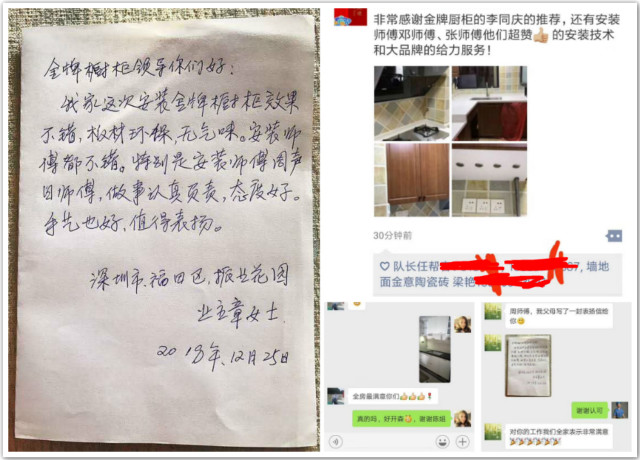 金牌橱柜领导你们好：
我家这次安装金牌橱柜效果
不错，板材环保，无气味。安装师
傅都不错。特别是安装师傅周声
日师傅，做事认真负责，态度好。
手艺也好，值得表扬。
深圳市、福田区、振兴花园
业主章女士
2018年、12月25日
非常感谢金牌厨柜的李同庆的推荐，还有安装
师傅邓师傅、张师傅他们超赞👍的安装技术
和大品牌的给力服务！
30分钟前
队长任帮
37, 墙地
面金意陶瓷砖 梁艳
全房最满意你们👍👍👍
真的吗，好开森😊、谢谢陈姐
周师傅，我父母写了一封表扬信给
你😊
谢谢认可
对你的工作我们全家表示非常满意